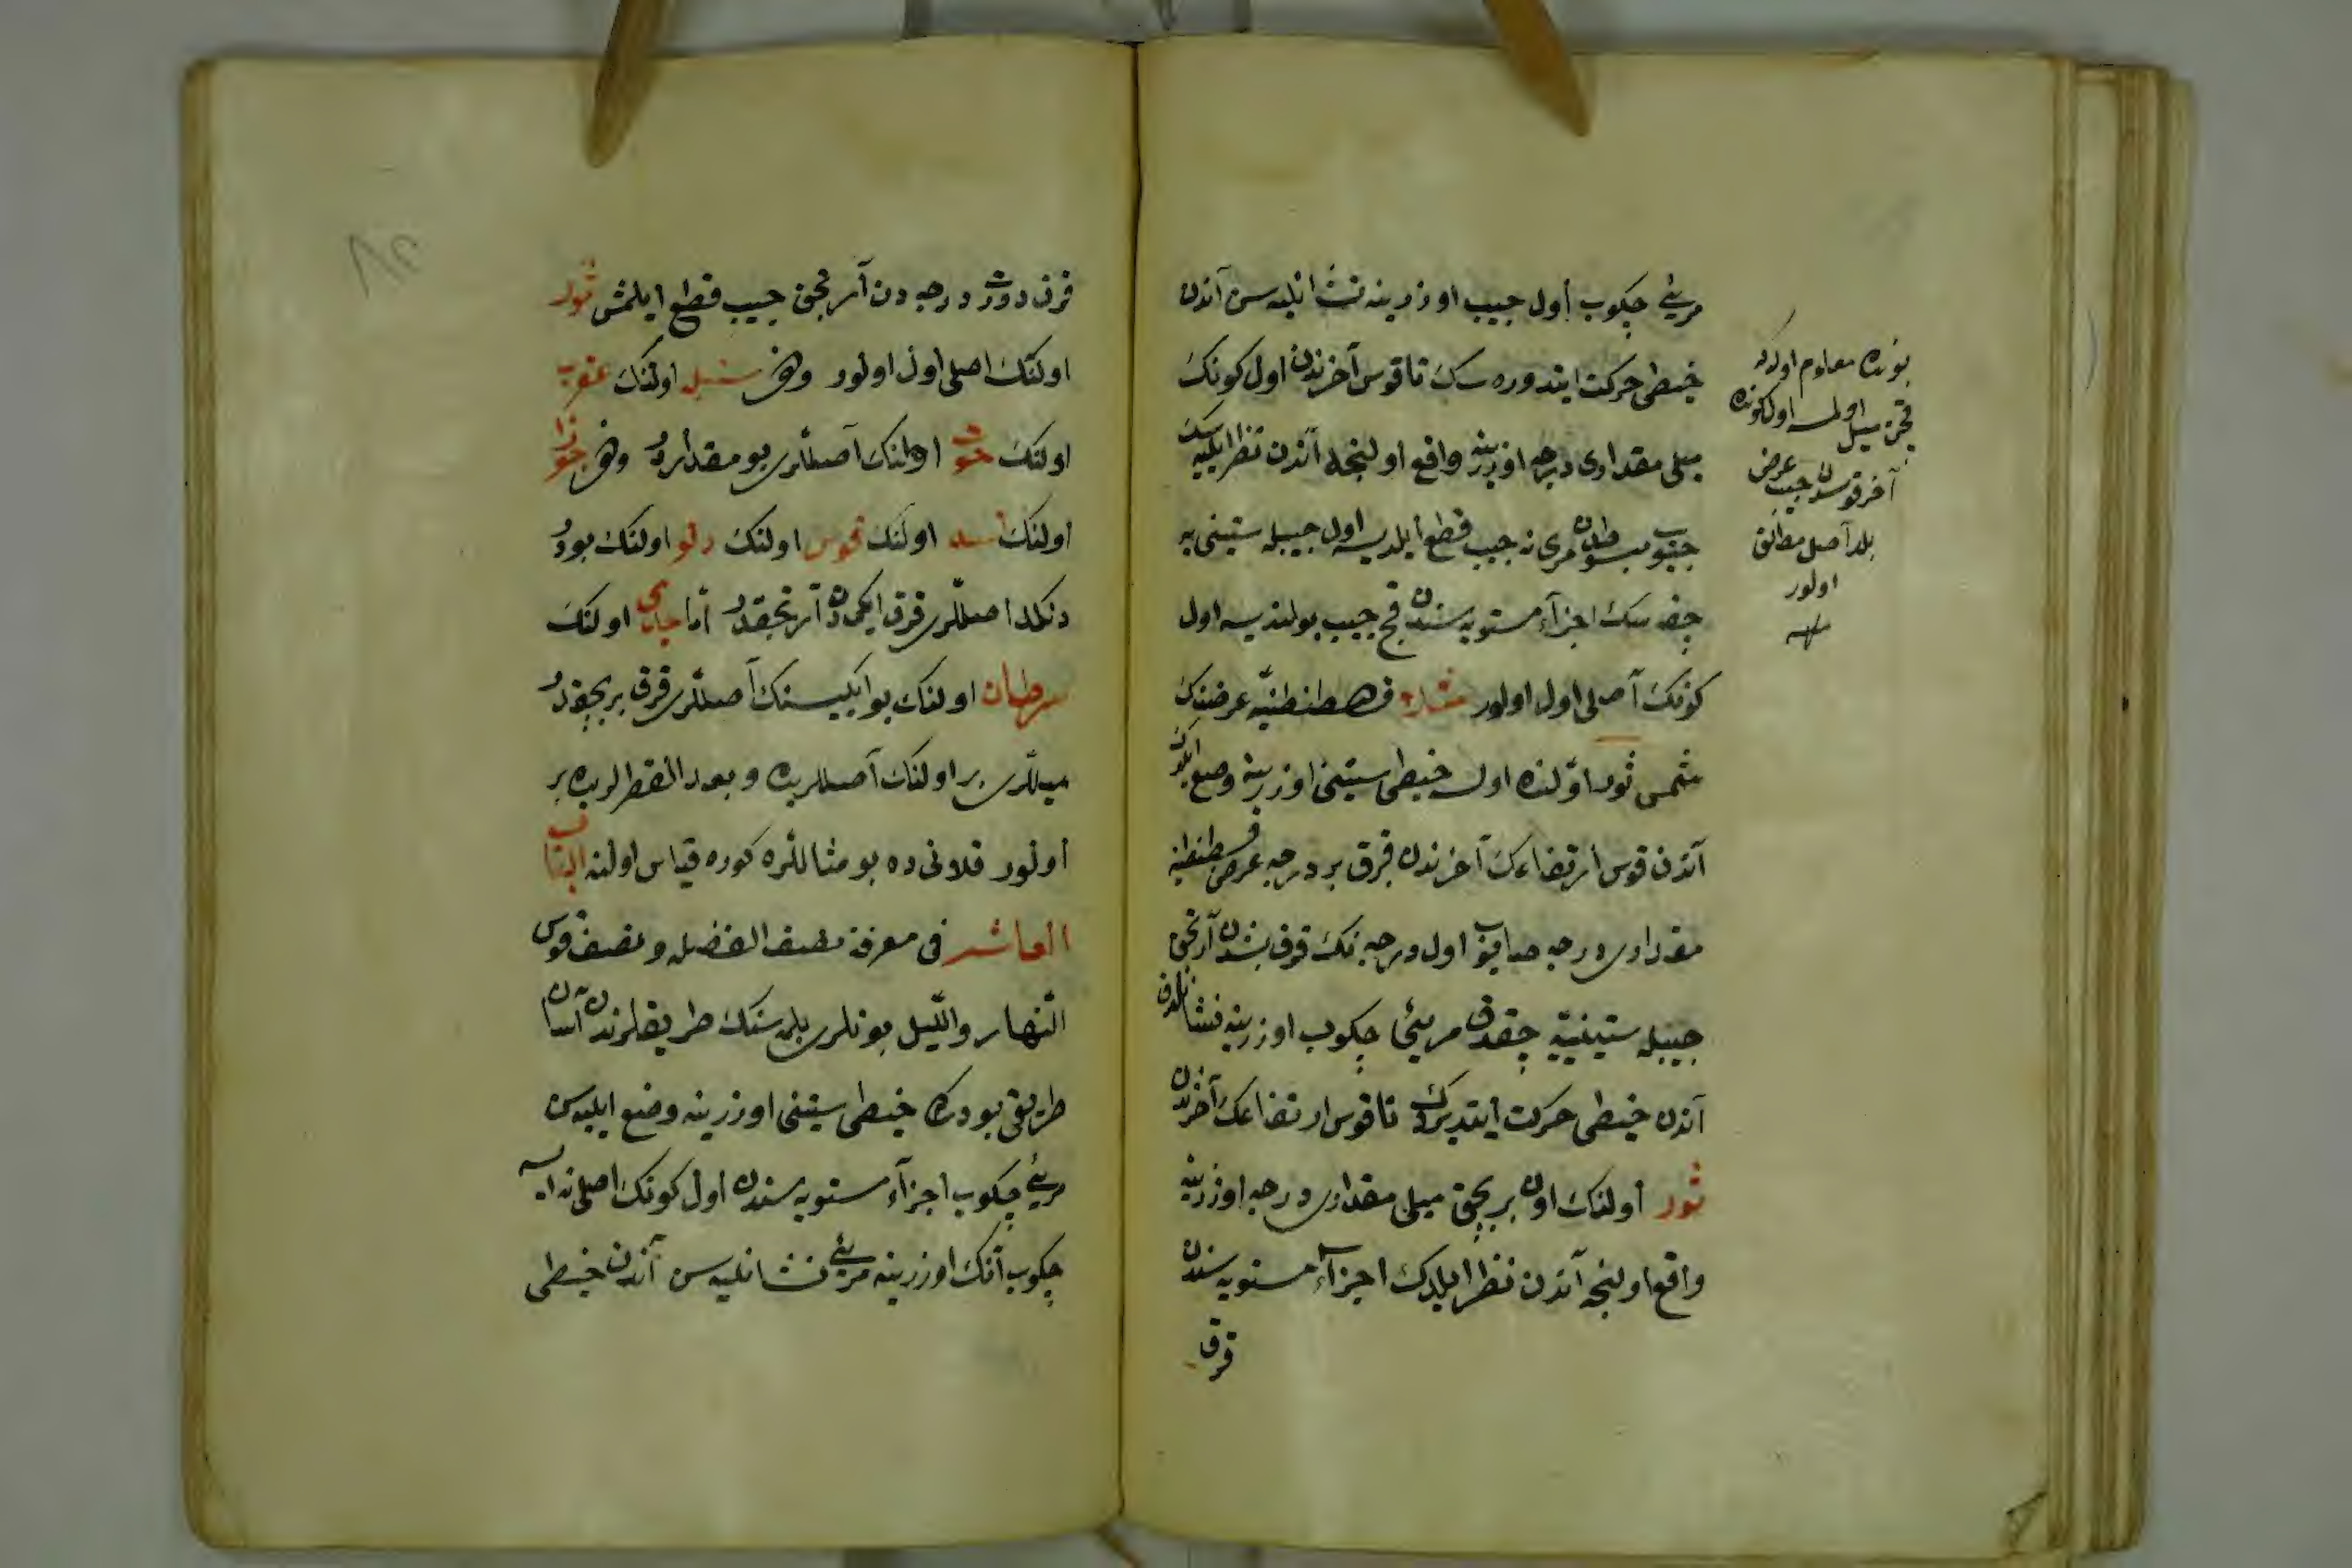 مریئ چکوب اول جیب اوزرینه نشانلیه سن آندن
خیطی حرکت ایتدوره سك تا قوس آخرندن اول کونك
میلی مقداری درجه اوزرینه واقع اولنجه آندن نظر ایلیه سك
جیوب مبسوطدن مری نه جیب قطع ایلدیسه اول جیبله ستینی یه
چقه سك اجزآء مستویه سندن قچ جیب بولندیسه اول
کونك آصلی اول اولور مثلا قسطنطنیّه عرضنك
شمس ثور اوّلنده اولسه خیطی ستینی اوزرینه وضع ایلدك
آندن قوس ارتفاعك آخرندن قرق بر درجه عرض قسطنطنیه
مقداری درجه صایوب اول درجه نك قرق بشدن آرتجق
جیبله ستینییه چقدق مریئی چکوب اوزرینه نشانلدق
آندن خیطی حرکت ایتدیردك تا قوس ارتفاعك آخرندن
ثور اولنك اون بر بچق میلی مقداری درجه اوزرینه
واقع اولنجه آندن نظر ایلدك اجزآء مستویه سندن
قرق
بونده معلوم اولدکه
قچن میل اولمسه اول کونده
آخر قوسدن جیب عرض
بلد آصل مطلق
اولور
منه
قرق دورت درجه دن آرتجق جیب قطع ایلمش ثور
اولنك اصلی اول اولور وهم سنبله اولنك عقرب
اولنك حوت اولنك آصللری بو مقداردر وهم جوزا
اولنك اسد اولنك قوس اولنك دلو اولنك بو در
دنکلدا اصللری قرق ایکیدن آرتجقدر امّا جدی اولنك
سرطان اولنك بو ایکیسنك آصللری قرق بر بچقدر
میللری بر اولنك آصللریده و بعد القطرلریده بر
اولور قلانی ده بو مثاللره کوره قیاس اولنه الباب
العاشر فی معرفة نصف الفضله و نصف قوس
النّهار واللّیل بونلری بلمه سنك طریقلرندن آسان
طریقی بودرکه خیطی ستینی اوزرینه وضع ایلیه سن
مریئ چکوب اجزآء مستویه سندن اول کونك اصلی نه ایسه
چکوب آنك اوزرینه مریئ نشانلیه سن آندن خیطی